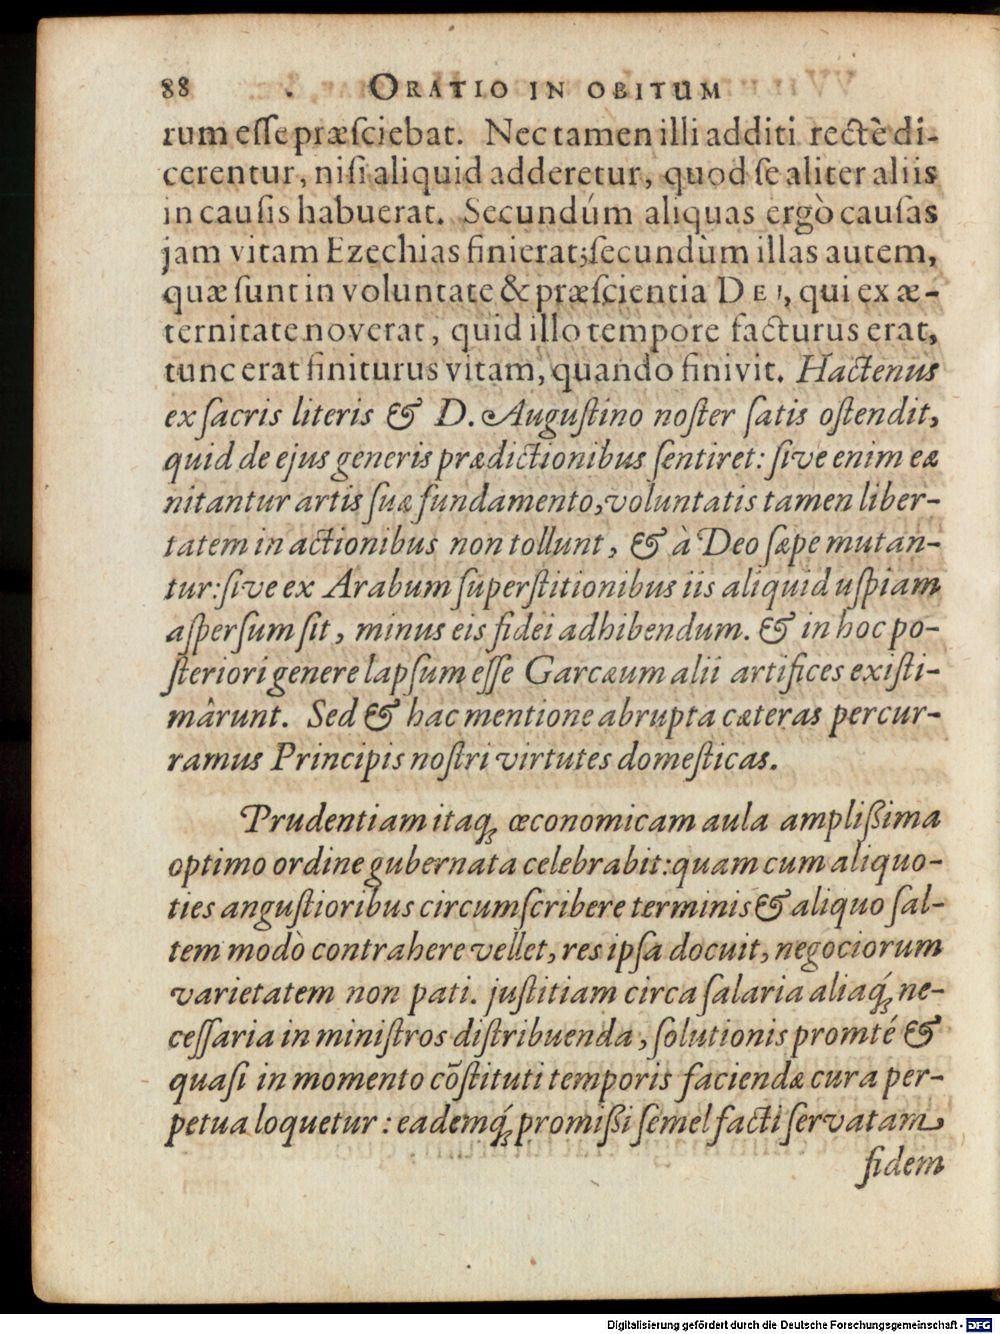 88 ORATIO IN OBITUM
rum eſſe præſciebat. Nec tamen illi additi rectè di-
cerentur, niſi aliquid adderetur, quod ſe aliter aliis
in cauſis habuerat. Secundúm aliquas ergò cauſas
jam vitam Ezechias finierat; ſecundùm illas autem,
quæ ſunt in voluntate & præſcientia DEI, qui ex æ-
ternitate noverat, quid illo tempore facturus erat,
tunc erat finiturus vitam, quando finivit. Hactenus
ex ſacris literis & D. Auguſtino noſter ſatis oſtendit,
quid de ejus generis prædictionibus ſentiret: ſive enim eæ
nitantur artis ſuæ fundamento, voluntatis tamen liber-
tatem in actionibus non tollunt, & à Deo ſæpe mutan-
tur: ſive ex Arabum ſuperſtitionibus iis aliquid uſpiam
aſperſum ſit, minus eis fidei adhibendum. & in hoc po-
ſteriori genere lapſum eſſe Garcæum alii artifices exiſti-
mârunt. Sed & hac mentione abrupta cæteras percur-
ramus Principis noſtri virtutes domeſticas.
Prudentiam itaq; œconomicam aula ampliſsima
optimo ordine gubernata celebrabit: quam cum aliquo-
ties anguſtioribus circumſcribere terminis & aliquo ſal-
tem modò contrahere vellet, res ipſa docuit, negociorum
varietatem non pati. juſtitiam circa ſalaria aliaq́; ne-
ceſſaria in miniſtros diſtribuenda, ſolutionis promté &
quaſi in momento cõſtituti temporis faciendæ cura per-
petua loquetur: eademq́; promiſsi ſemel facti ſervatam
fidem
Digitalisierung gefördert durch die Deutsche Forschungsgemeinschaft - DFG